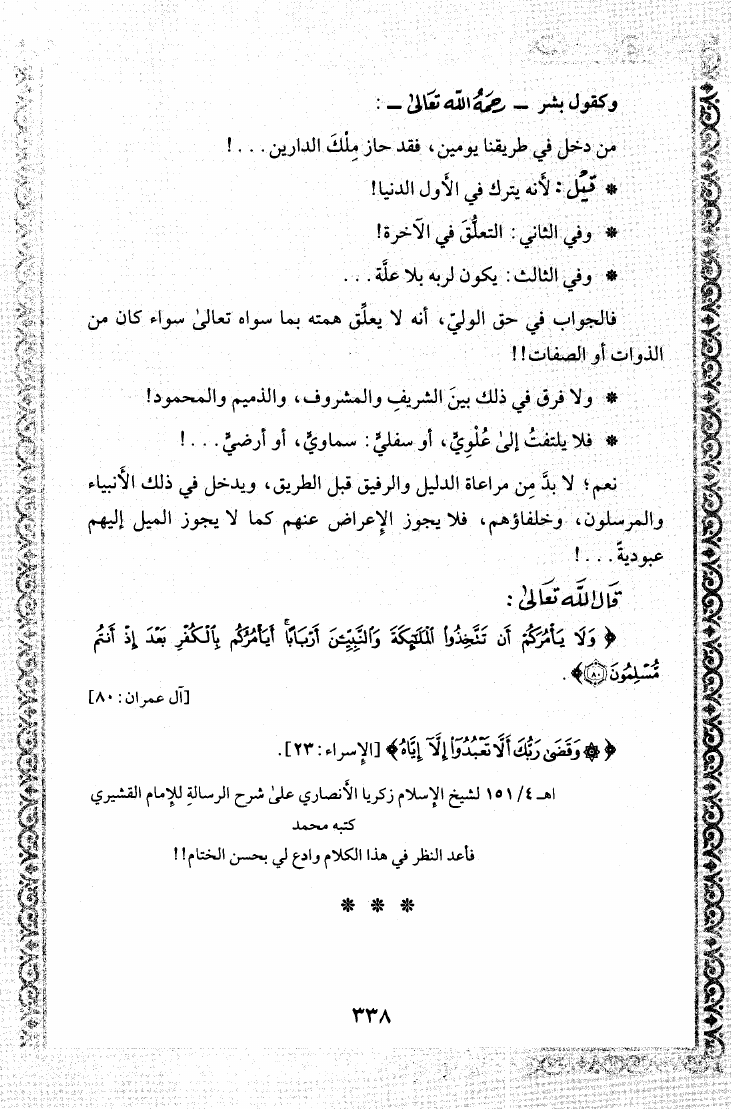 وكقول بشر ـ رحمه الله تعالى ـ :
من دخل في طريقنا يومين، فقد حاز مِلْكَ الدارين . . . !
* قيل: لأنه يترك في الأول الدنيا!
* وفي الثاني: التعلُّقَ في الآخرة!
* وفي الثالث: يكون لربه بلا علَّة . . .
فالجواب في حق الوليّ، أنه لا يعلِّق همته بما سواه تعالىٰ سواء كان من
الذوات أو الصفات!!
* ولا فرق في ذلك بينَ الشريفِ والمشروف، والذميم والمحمود!
* فلا يلتفتُ إلىٰ عُلْوِيٍّ، أو سفليٍّ: سماويٍّ، أو أرضيٍّ . . . !
نعم؛ لا بدَّ مِن مراعاة الدليل والرفيق قبل الطريق، ويدخل في ذلك الأنبياء
والمرسلون، وخلفاؤهم، فلا يجوز الإعراض عنهم كما لا يجوز الميل إليهم
عبوديةً . . . !
قال الله تعالى :
﴿ وَلَا يَأْمُرَكُمْ أَن تَتَّخِذُوا۟ ٱلْمَلَٰٓئِكَةَ وَٱلنَّبِيِّـۧنَ أَرْبَابًا ۗ أَيَأْمُرُكُم بِٱلْكُفْرِ بَعْدَ إِذْ أَنتُم
مُّسْلِمُونَ ٨٠﴾ .
[آل عمران: ٨٠]
﴿ ۞ وَقَضَىٰ رَبُّكَ أَلَّا تَعْبُدُوٓا۟ إِلَّآ إِيَّاهُ ﴾ [الإسراء: ٢٣].
اهـ ٤/ ١٥١ لشيخ الإسلام زكريا الأنصاري علىٰ شرح الرسالةِ للإمام القشيري
كتبه محمد
فأعد النظر في هذا الكلام وادع لي بحسن الختام!!
* * *
٣٣٨